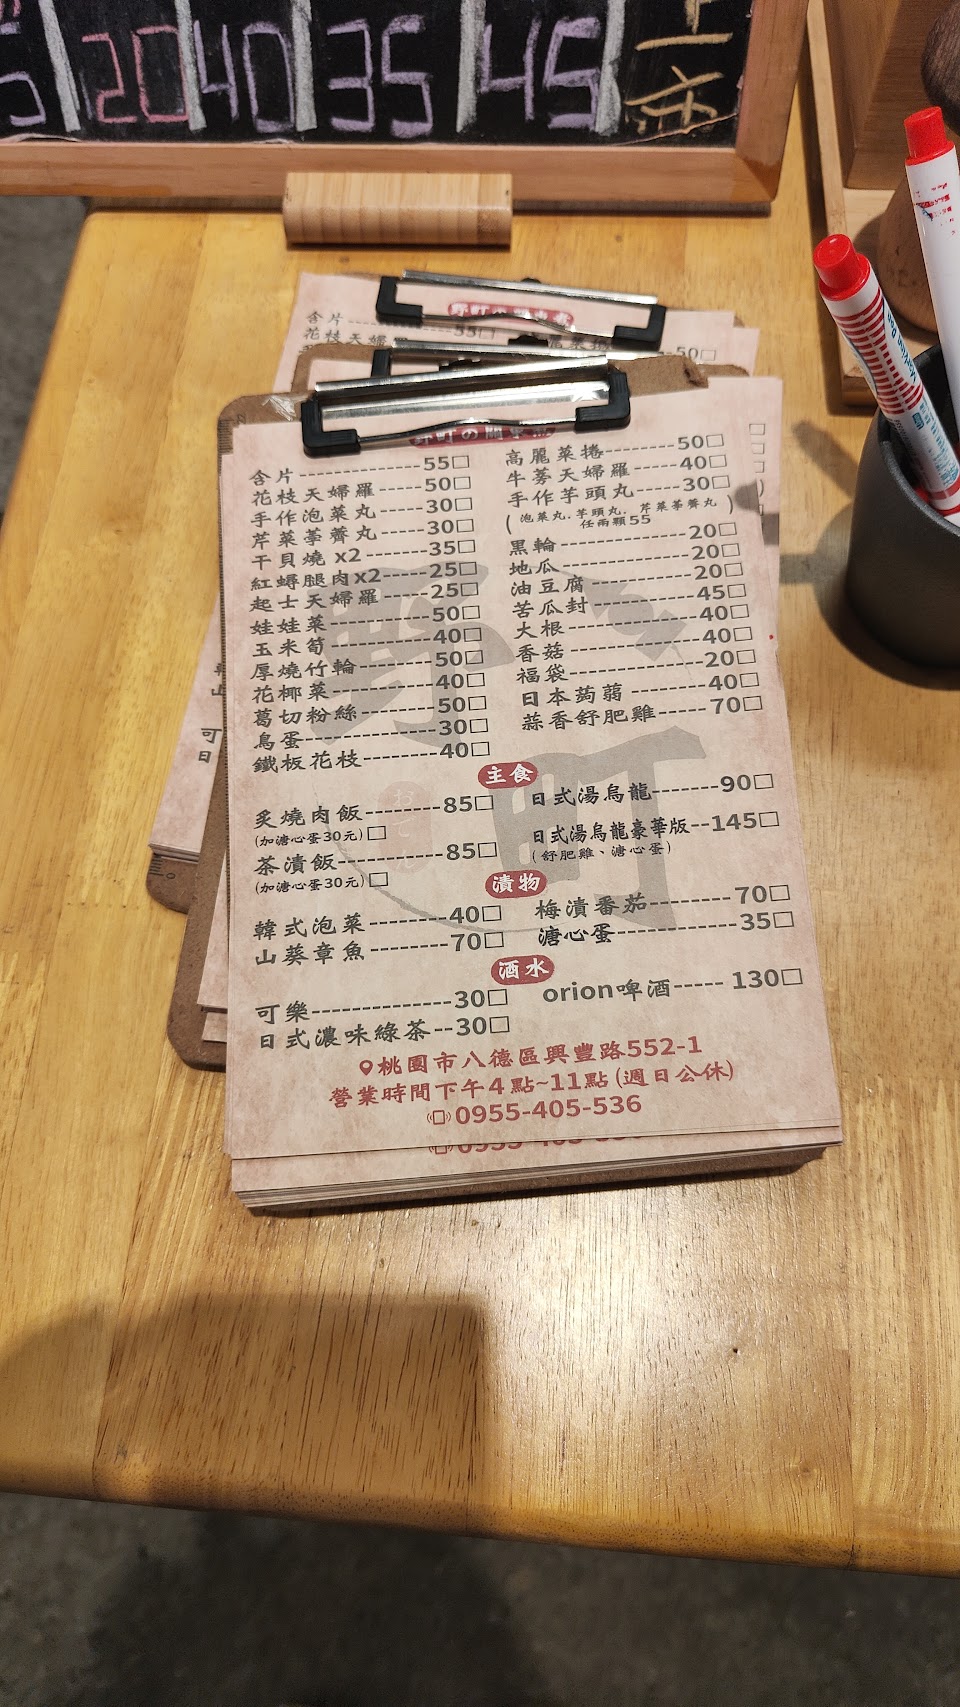 20 40 35 45
含片---------------55□
花枝天婦羅------50□
手作泡菜丸------30□
芹菜荸薺丸------30□
干貝燒 x2--------35□
紅蟳腿肉x2-----25□
起士天婦羅------25□
娃娃菜------------50□
玉米筍------------40□
厚燒竹輪---------50□
花椰菜------------40□
葛切粉絲---------50□
鳥蛋---------------30□
鐵板花枝---------40□
高麗菜捲---------50□
牛蒡天婦羅------40□
手作芋頭丸------30□
(泡菜丸.芋頭丸.芹菜荸薺丸
任兩顆55)
黑輪---------------20□
地瓜---------------20□
油豆腐------------20□
苦瓜封------------45□
大根---------------40□
香菇---------------40□
福袋---------------20□
日本蒟蒻---------40□
蒜香舒肥雞------70□
主食
炙燒肉飯---------85□
(加溏心蛋30元)□
茶漬飯------------85□
(加溏心蛋30元)□
日式湯烏龍-------90□
日式湯烏龍豪華版--145□
(舒肥雞、溏心蛋)
漬物
韓式泡菜---------40□
山葵章魚---------70□
梅漬番茄---------70□
溏心蛋------------35□
酒水
可樂---------------30□
日式濃味綠茶--30□
orion啤酒----- 130□
桃園市八德區興豐路552-1
營業時間下午4點~11點(週日公休)
0955-405-536